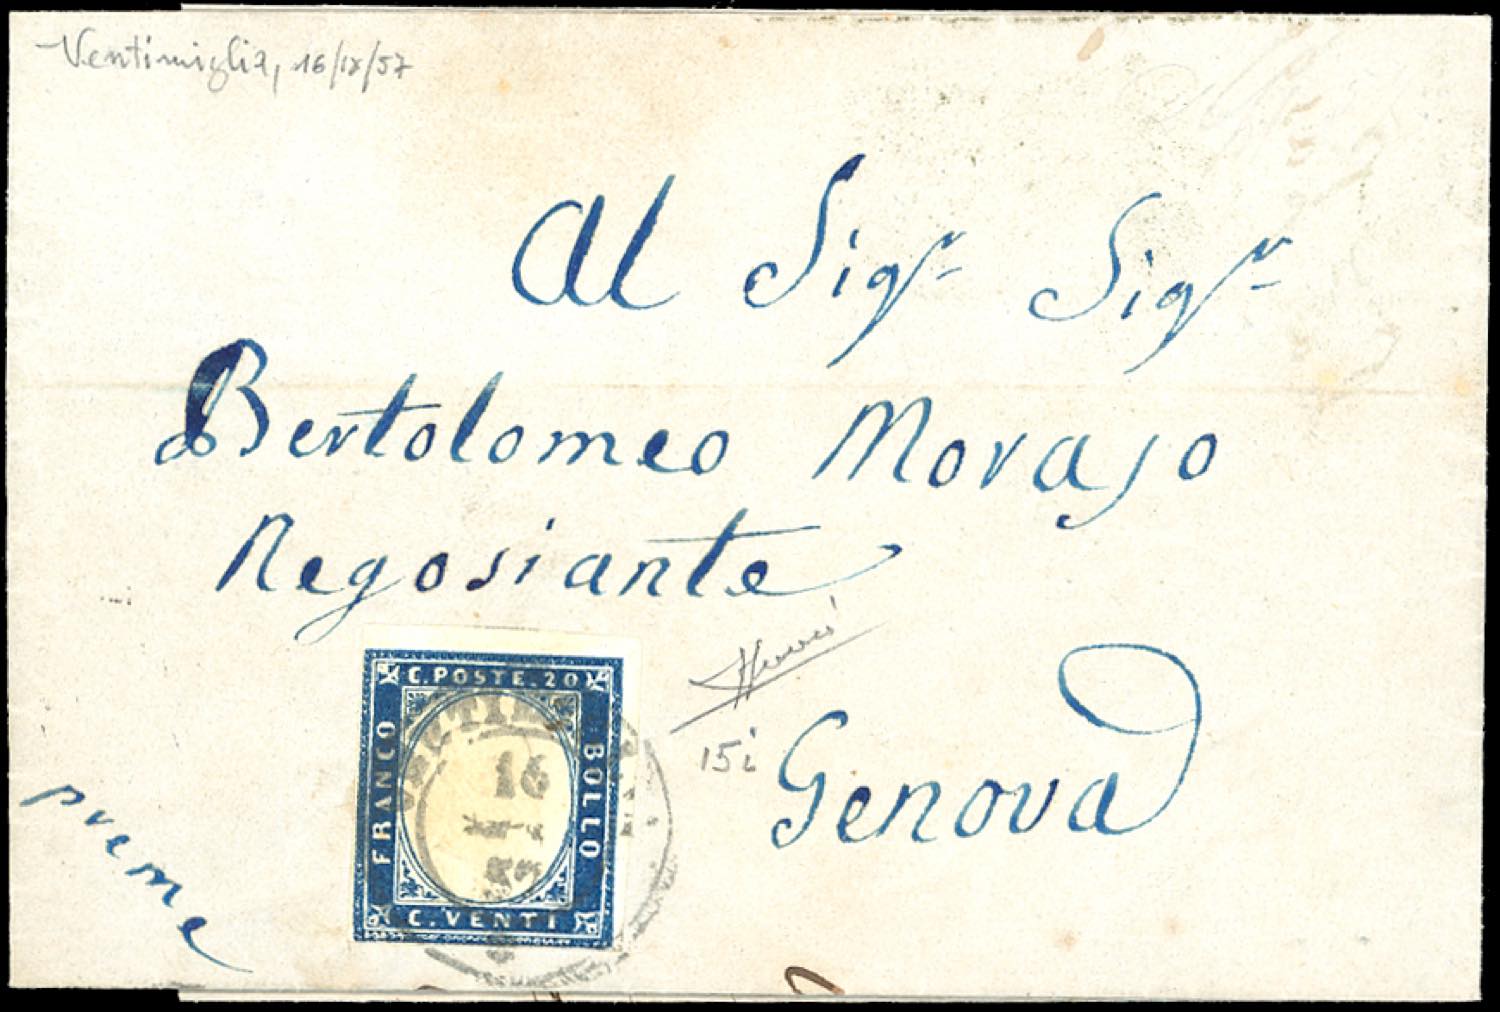 Ventimiglia, 16/IX/57
Al Sigr Sigr
Bertolomeo Morajo
Negosiante
Genova
preme
15i
C. POSTE. 20
FRANCO
BOLLO
C. VENTI
16
57